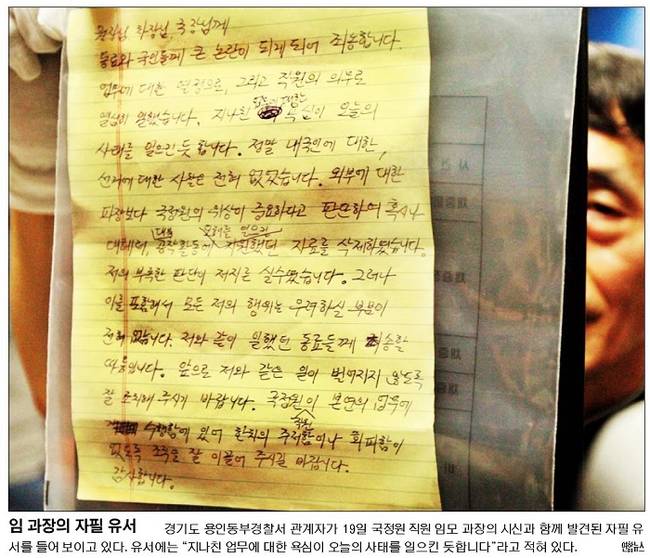 원장님 차장님, 국장님께
동료와 국민들께 큰 논란이 되게 되어 죄송합니다.
업무에 대한 열정으로, 그리고 직원의 의무로
열심히 일했습니다. 지나친 업무에 대한 욕심이 오늘의
사태를 일으킨 듯 합니다. 정말 내국인에 대한,
선거에 대한 사찰은 전혀 없었습니다. 외부에 대한
파장보다 국정원의 위상이 중요하다고 판단하여 혹시나
대테러, 대북 공작활동에 오해를 일으킬 지원했던 자료를 삭제하였습니다.
저의 부족한 판단이 저지른 실수였습니다. 그러나
이를 포함해서 모든 저의 행위는 우려하실 부분이
전혀 없습니다. 저와 같이 일했던 동료들께 죄송할
따름입니다. 앞으로 저와 같은 일이 벌어지지 않도록
잘 조치해 주시기 바랍니다. 국정원의 직원 본연의 업무에
수행함에 있어 한치의 주저함이나 회피함이
없도록 조직을 잘 이끌어 주시길 바랍니다.
감사합니다.
임 과장의 자필 유서 경기도 용인동부경찰서 관계자가 19일 국정원 직원 임모 과장의 시신과 함께 발견된 자필 유
서를 들어 보이고 있다. 유서에는 “지나친 업무에 대한 욕심이 오늘의 사태를 일으킨 듯합니다”라고 적혀 있다.